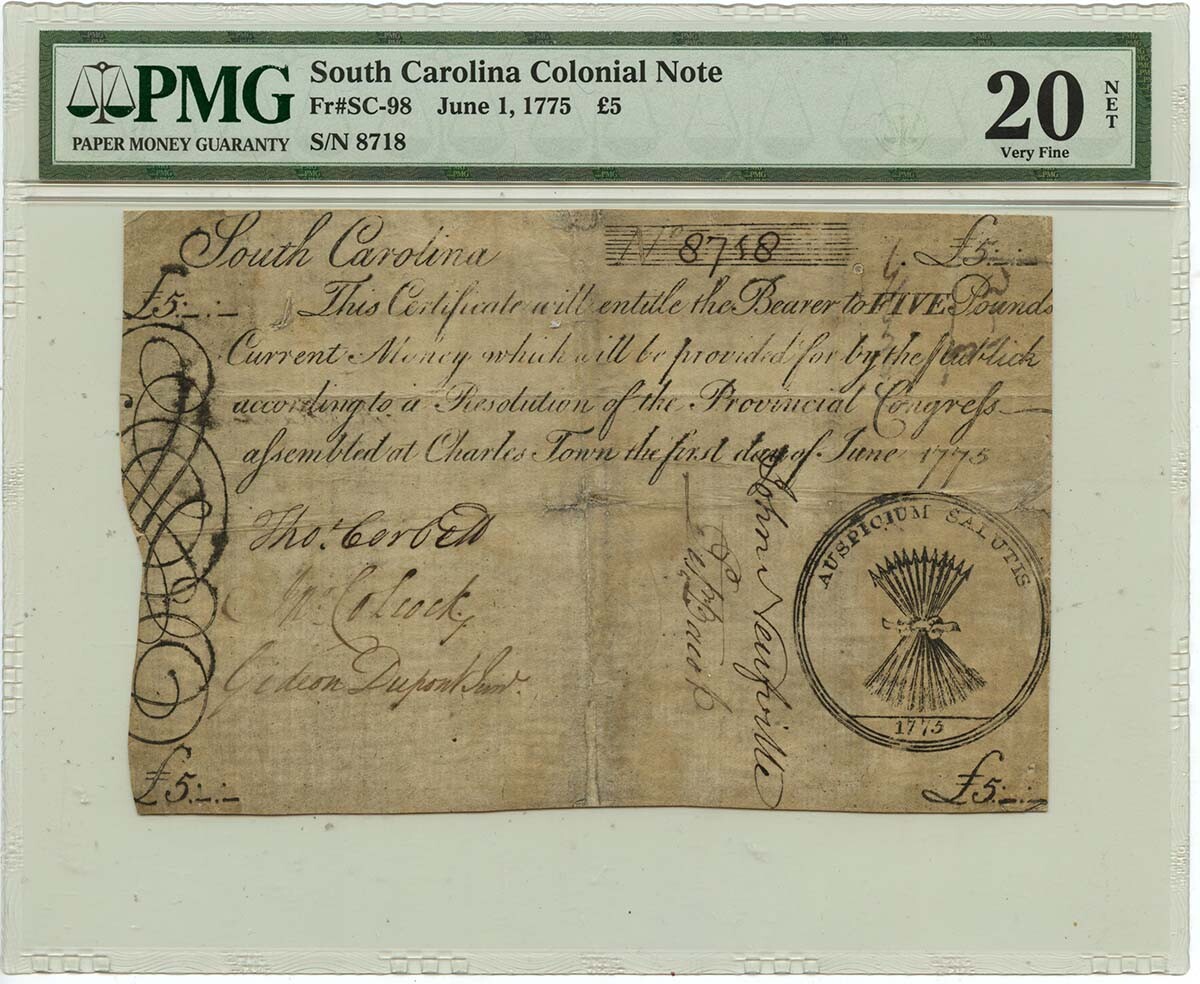 PMG
PAPER MONEY GUARANTY
South Carolina Colonial Note
Fr#SC-98 June 1, 1775 £5
S/N 8718
20
NET
Very Fine
South Carolina
No 8718
£5
£5
This Certificate will entitle the Bearer to FIVE Pounds
Current Money which will be provided for by the publick
according to a Resolution of the Provincial Congreſs
aſsembled at Charles Town the first day of June 1775
Thos. Corbett
Wm. Colcock
Gideon Dupont Junr.
John Neufville
AUSPICIUM SALUTIS
1775
£5
£5